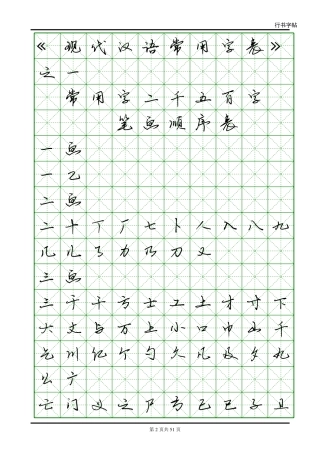 行书字帖
《 现 代 汉 语 常 用 字 表 》
之 一
常 用 字 二 千 五 百 字
笔 画 顺 序 表
一 画
一 乙
二 画
二 十 丁 厂 七 卜 人 入 八 九
几 儿 了 力 乃 刀 又
三 画
三 于 干 亏 士 工 土 才 寸 下
大 丈 与 万 上 小 口 巾 山 千
乞 川 亿 个 勺 久 凡 及 夕 丸
么 广
亡 门 义 之 尸 弓 己 已 子 卫
第 2 页共 91 页